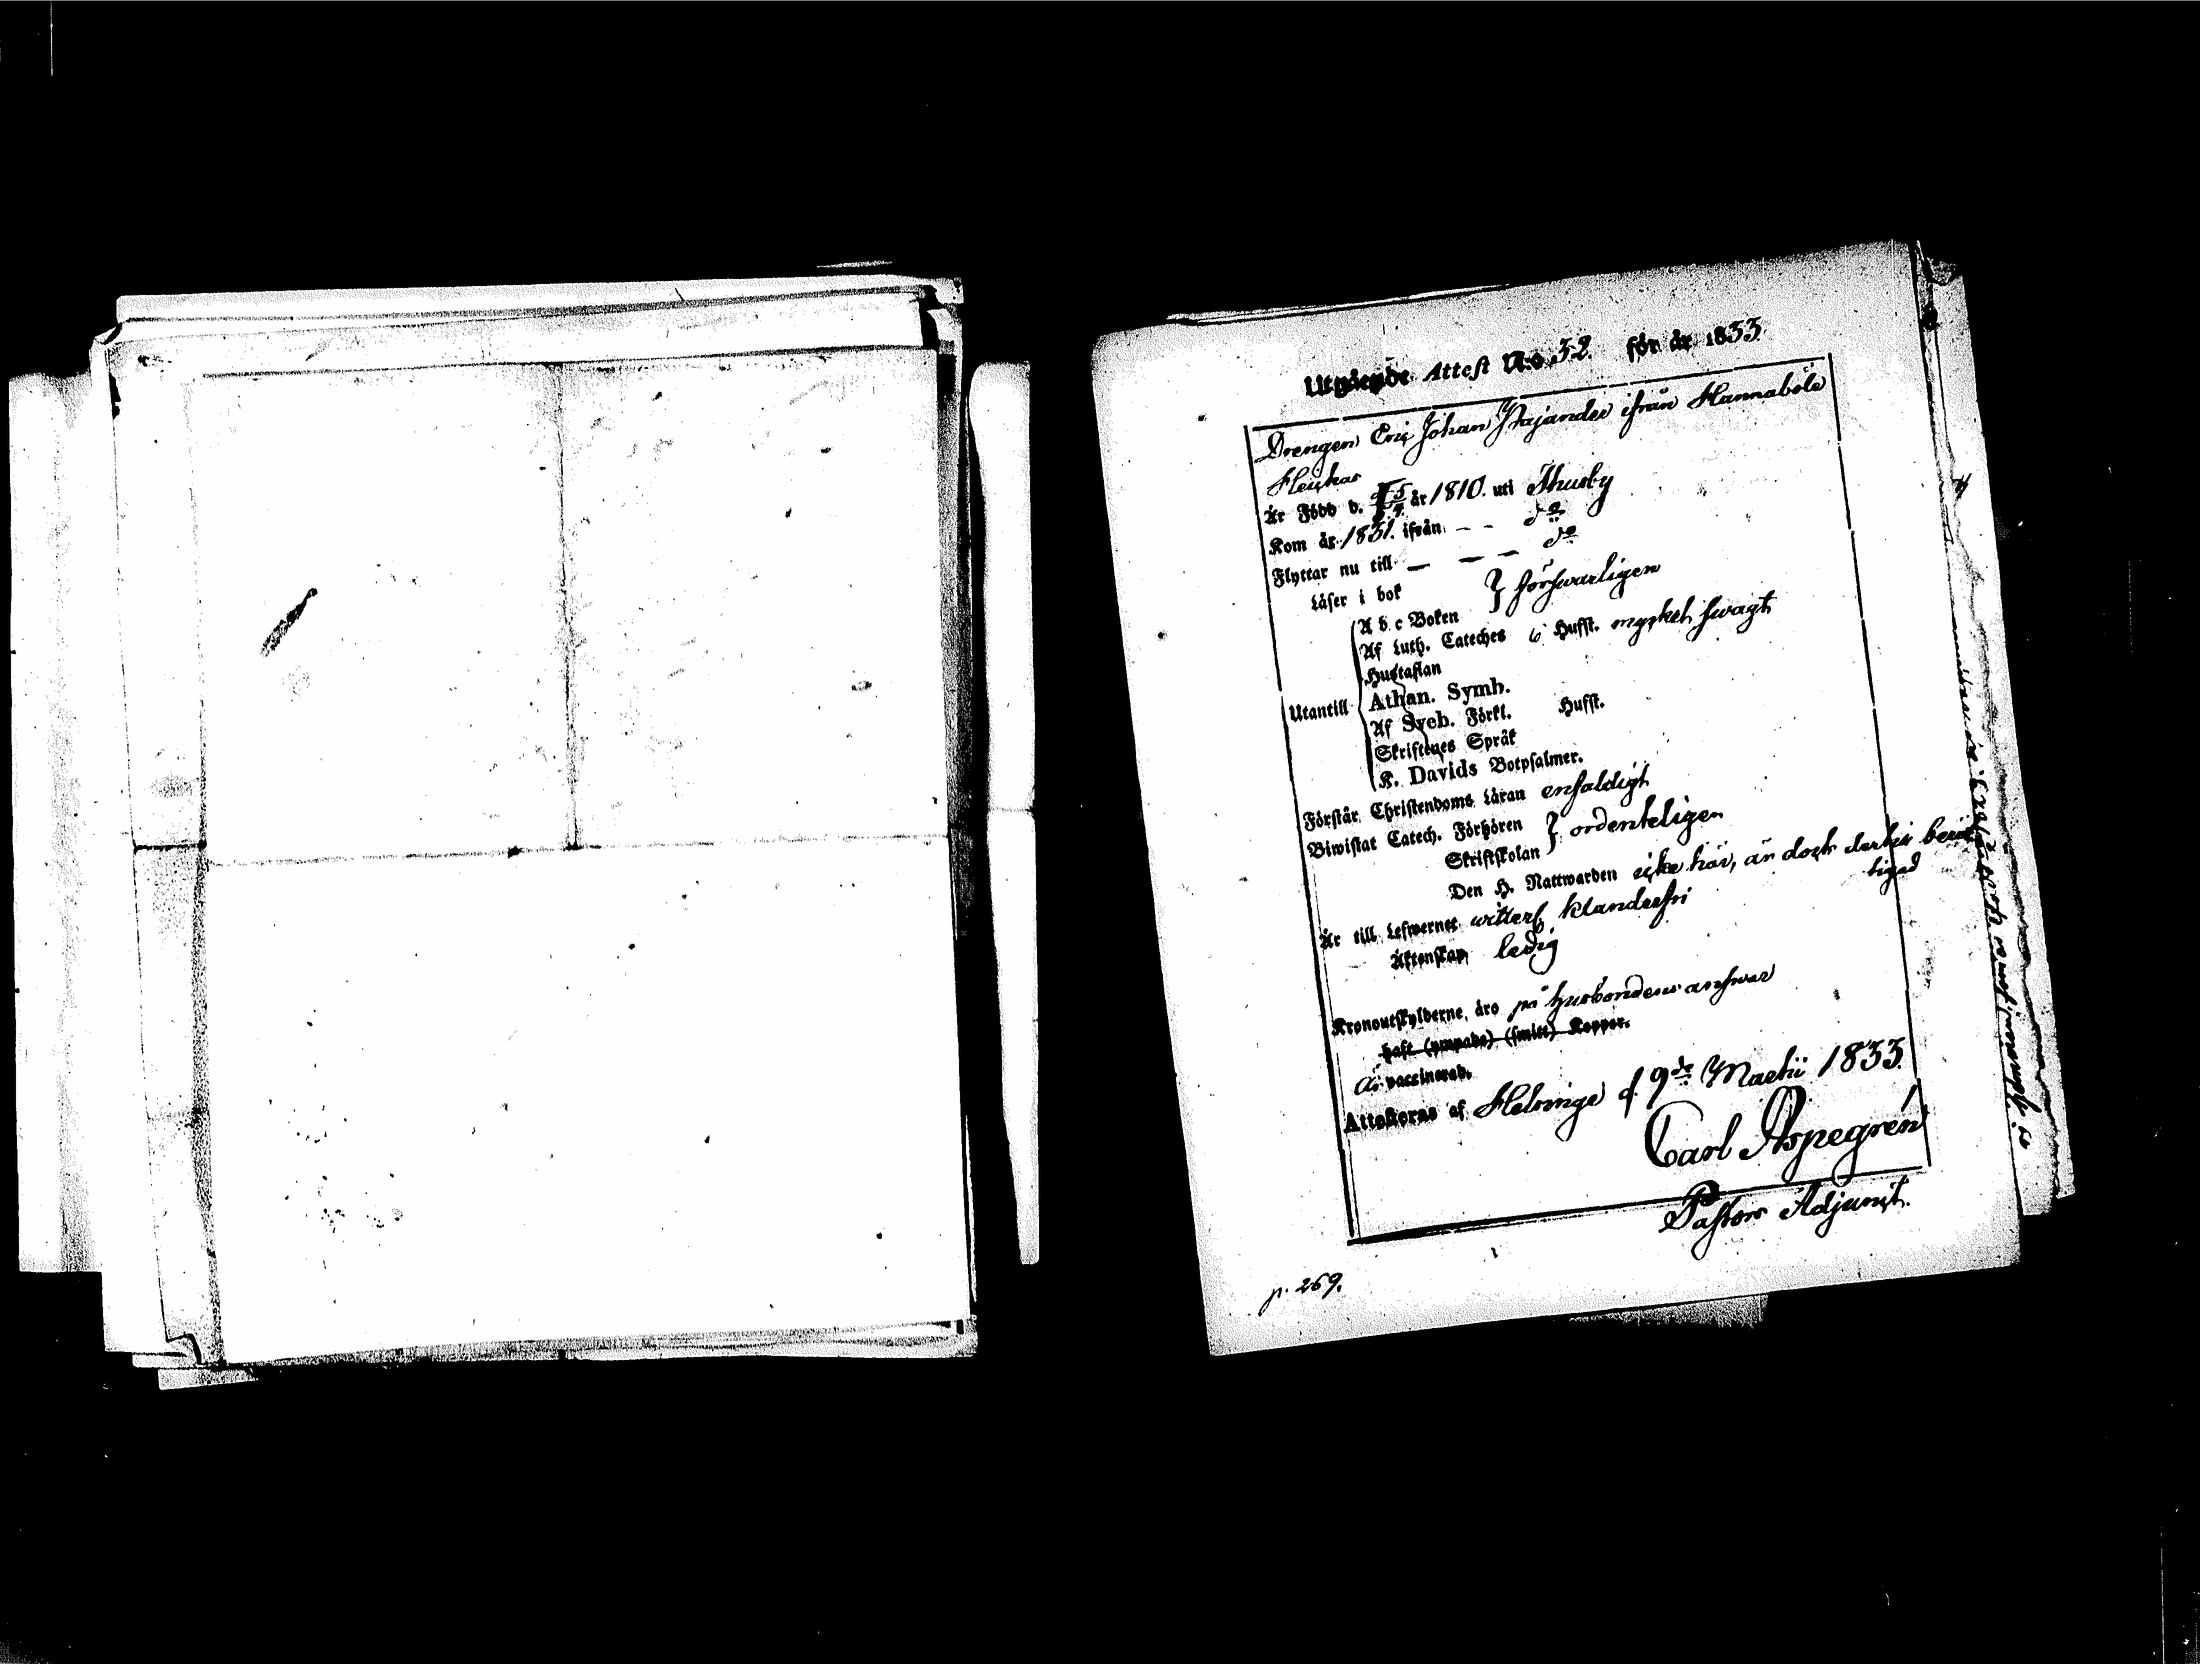 Utgående Attest N:o 32. för år 1833.
Drengen Eric Johan Stajander ifrån Hannaböle
Är Född d. 5/4 år 1810. uti Thusby
Kom år 1831. ifrån — — do
Flyttar nu till — — — do
Läser i bok } försvarligen
A b c Boken
Af Luth. Cateches 6 Hufst. mycket swagt
Hustaflan
Athan. Symb.
Utantill
Af Sveb. Förkl. Hufst.
Skriftenes Språk
K. Davids Botpsalmer.
Förstår Christendoms Läran enfaldigt
Biwistat Catech. Förhören } ordenteligen
Skriftskolan
Den H. Nattwarden icke här, är dock dertill berät-
tigad
Är till Lefwernet witterl. klanderfri
Äktenskap ledig
Kronoutskylderne äro på husbondens answar
haft (ympade) (smitt) Koppor.
är vaccinerad.
Attesteras af Helsinge d. 9de Martii 1833.
Carl Aspegrén
Pastors Adjunct.
p. 269.